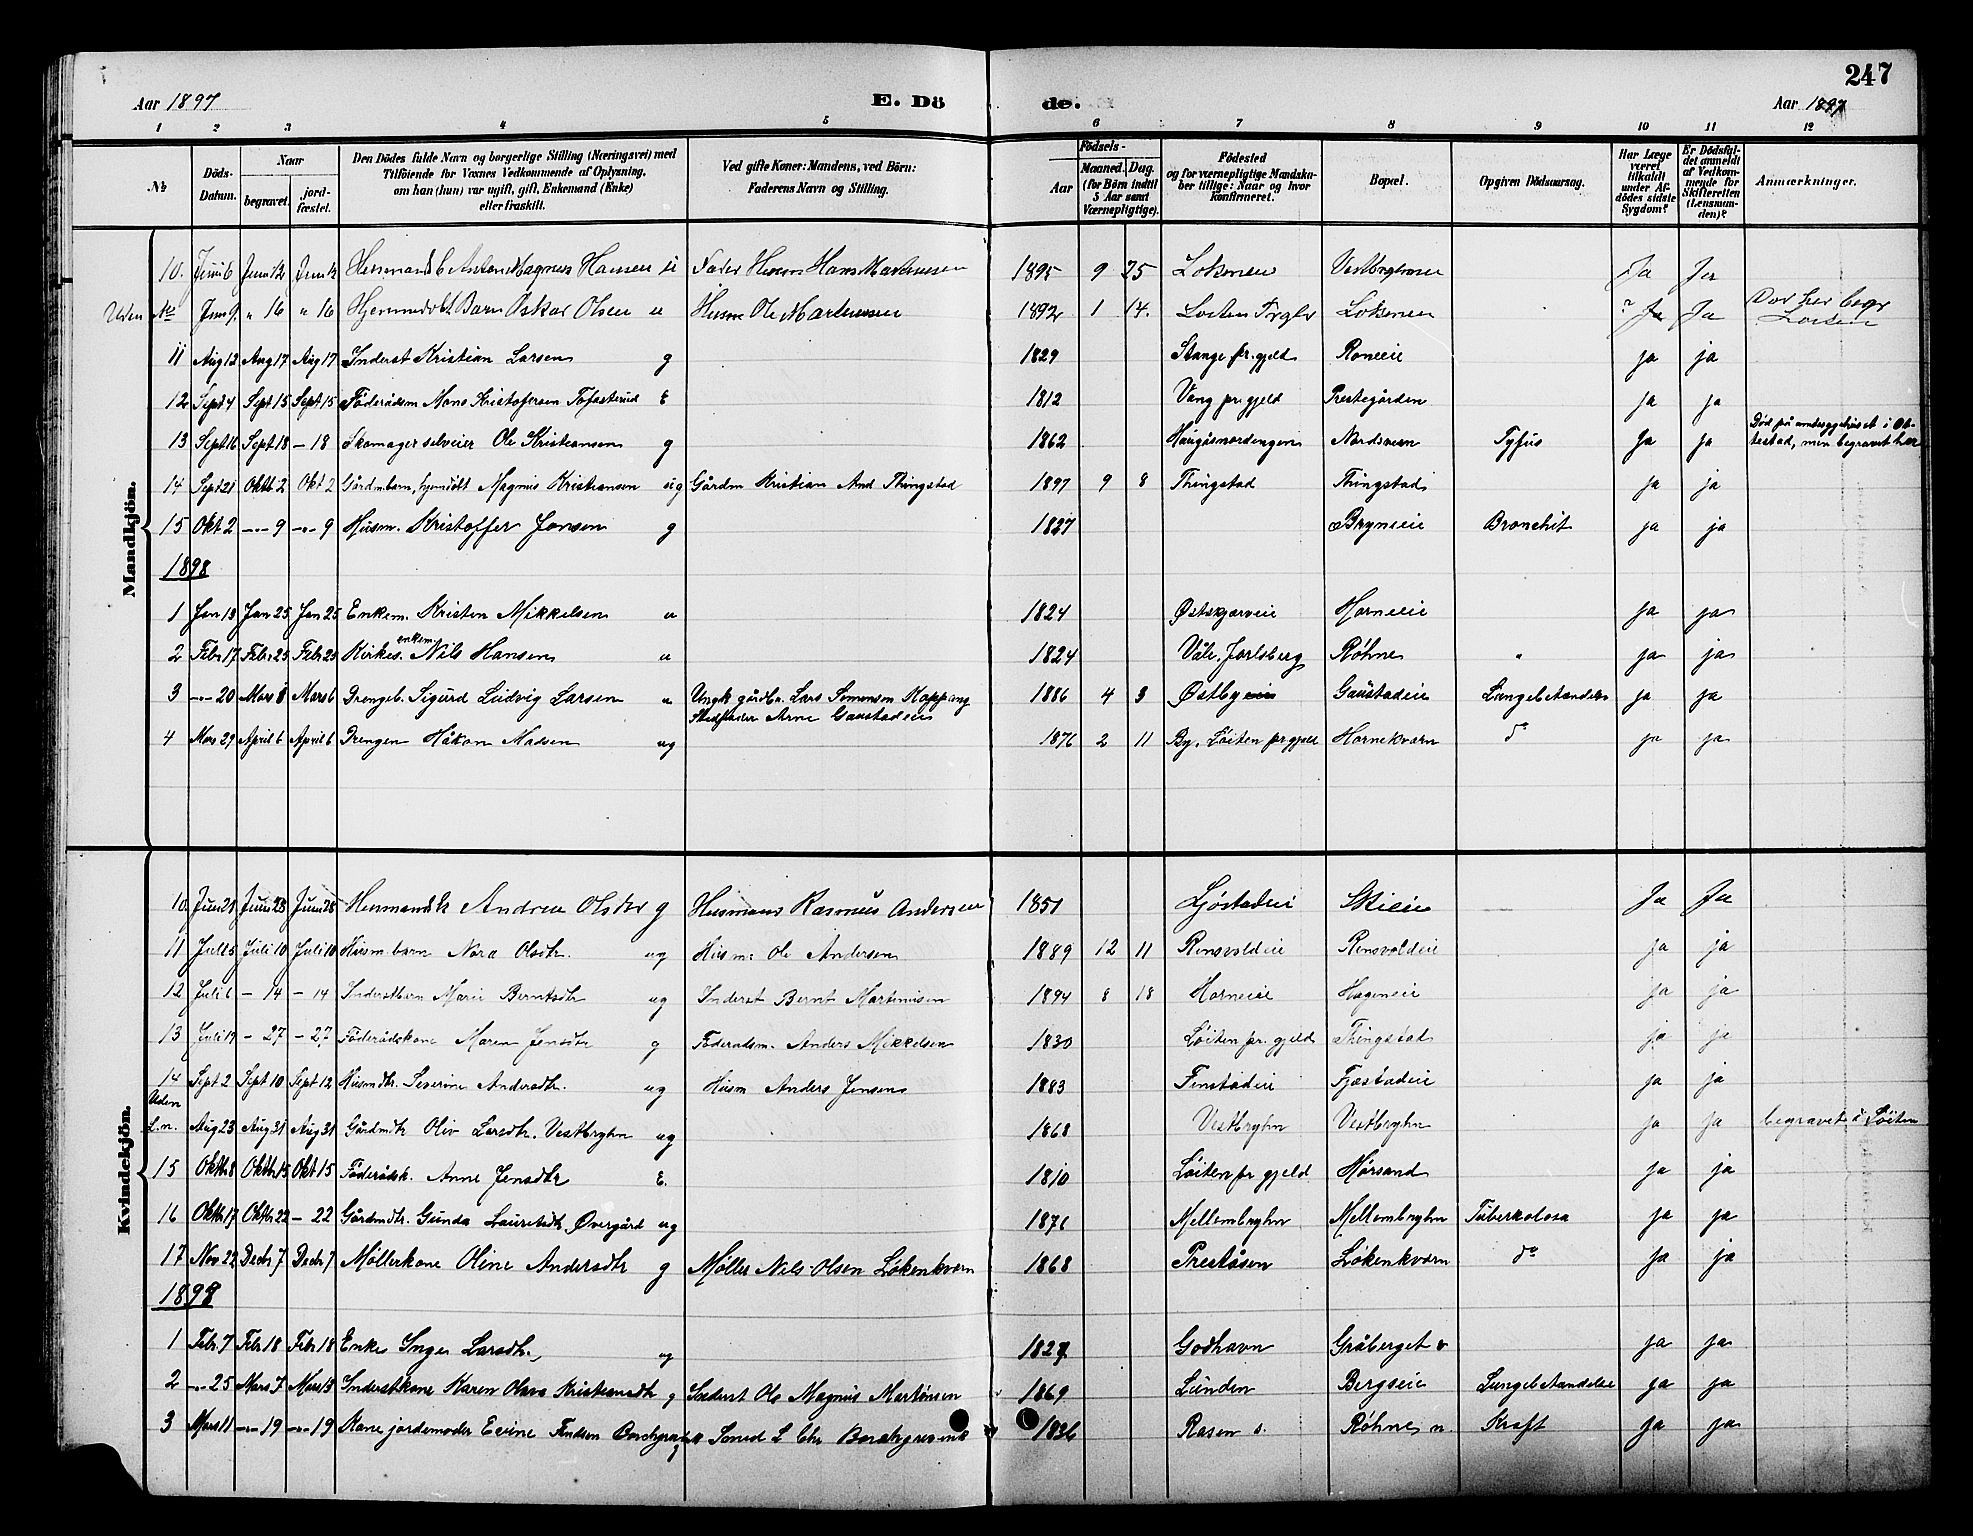 247
Aar 1897 E. Dö de. Aar 1897
1 2 3 4 5 6 7 8 9 10 11 12
No. Döds-Datum. Naar begravet. jordfæstet. Den Dödes fulde Navn og borgerlige Stilling (Næringsvei) med Tilföiende for Voxnes Vedkommende af Oplysning, om han (hun) var ugift, gift, Enkemand (Enke) eller fraskilt. Ved gifte Koner: Mandens, ved Börn: Faderens Navn og Stilling. Födsels- Aar Maaned. Dag. (for Börn indtil 5 Aar samt Værnepligtige). Födested og for værnepligtige Mandskaber tillige: Naar og hvor konfirmeret. Bopæl. Opgiven Dödsaarsag. Har Læge været tilkaldt under Afdödes sidste Sygdom? Er Dödsfaldet anmeldt af Vedkommende for Skifteretten (Lensmanden)? Anmærkninger.
Mandkjön.
10. Juni 6 Juni 12 Juni 12 Anton Magnus Hansen Fader Husm Hans Martinsen 1895 9 25 Ja Ja
Uden No Juni 9. " 16 " 16 Barn Oskar Olsen u Husm Ole Martinsen 1892 1 14. Ja Ja
11 Aug 12 Aug 17 Aug 17 Inderst Kristian Larsen g 1829 Stange pr.gjeld Roneeie ja ja
12 Sept 4 Sept 15 Sept 15 Föderådsm Mons Kristofersen Tofasterud E 1812 Vang pr.gjeld Prestegården ja ja
13 Sept 16 Sept 18 – 18 Skomager selveier Ole Kristiansen g 1862 Nordsveen Tyfus Ja ja Död på amtssygehuset i Ottestad, men begravet her
14 Sept 21 Oktb 2 Okt 2 Gårdmbarn, hjemdöbt Magnus Kristiansen ug Gårdm Kristian And Thingstad 1897 9 8 Thingstad Thingstad ja ja
15 Okt 2 –"– 9 –"– 9 Husm. Kristoffer Jonsen g 1827 Brynseie Bronchit ja ja
1898
1 Jan 13 Jan 25 Jan 25 Enkem. Kristen Mikkelsen u 1824 Østskjærveie Horneeie ja ja
2 Febr 17 Febr 25 Febr 25 Kirkes. enkem. Nils Hansen u 1824 Våle, Jarlsberg Røhne " ja ja
3 –"– 20 Mars 8 Mars 6 Drengeb. Sigurd Ludvig Larsen u Ungk gårdbr. Lars Simensen Koppang 1886 4 3 Østbyeie Gaustadeie Lungebetændelse ja ja
Stedfader Arne Gaustadeie
4 Mars 29 April 6 April 6 Drengen Håkon Madsen ug 1876 2 11 By, Löiten pr.gjeld Hornekværn do ja ja
Kvindekjön.
10 Juni 21 Juni 28 Juni 28 Husmandsk Andrea Olsdtr g Husmand Rasmus Andersen 1851 Ljøstadeie Skieie Ja Ja
11 Juli 5 Juli 10 Juli 10 Husm.barn Nora Olsdtr. ug Husm: Ole Andersen 1889 12 11 Rensvoldeie Rensvoldeie ja ja
12 Juli 6 – 14 – 14 Inderstbarn Marie Berntsdtr ug Inderst Bernt Martinusen 1894 8 18 Horneeie Hageneie ja ja
13 Juli 19 – 27 – 27 Föderådskone Maren Jensdtr g Föderådsm. Anders Mikkelsen 1830 Löiten pr. gjeld Thingstad ja ja
14 Sept 2 Sept 10 Sept 12 Husmdtr. Severine Andersdtr. ug Husm Anders Jensen 1883 Finstadeie Fjæstadeie ja ja
Uden
L.n. Aug 23 Aug 31 Aug 31 Gårdmdtr Oliv Larsdtr. Vestbryhn ug 1868 Vestbryhn Vestbryhn ja ja begravet i Löiten
15 Oktb 8 Oktb 15 Okt 15 Föderådsk. Anne Jensdtr E. 1810 Löiten pr gjeld Hørsand ja ja
16 Oktb 17 Oktb 22 – 22 Gårdmdtr. Gunda Lauritsdtr. Øvergård ug 1871 Mellembryhn Mellembryhn Tuberkolosa ja ja
17 Nov 22 Decbr 7 Decbr 7 Møllerkone Oline Andersdtr g Møller Nils Olsen Løkenkværn 1868 Preståsen Løkenkværn do ja ja
1898
1 Febr. 7 Febr 18 Febr 18 Enke Inger Larsdtr. ug 1827 Godhavn Gråberget ja ja
2 –"– 25 Mars 7 Mars 13 Inderstkone Karen Olava Kristiansdtr g Inderst Ole Magnus Martinsen 1869 Lunden Bergseie Lungebetændelse ja ja
3 Mars 11 –"– 19 –"– 19 Kone jordemoder Evine g L Chr Borchgrevink 1836 Rasen s. Røhne n. Kræft ja ja